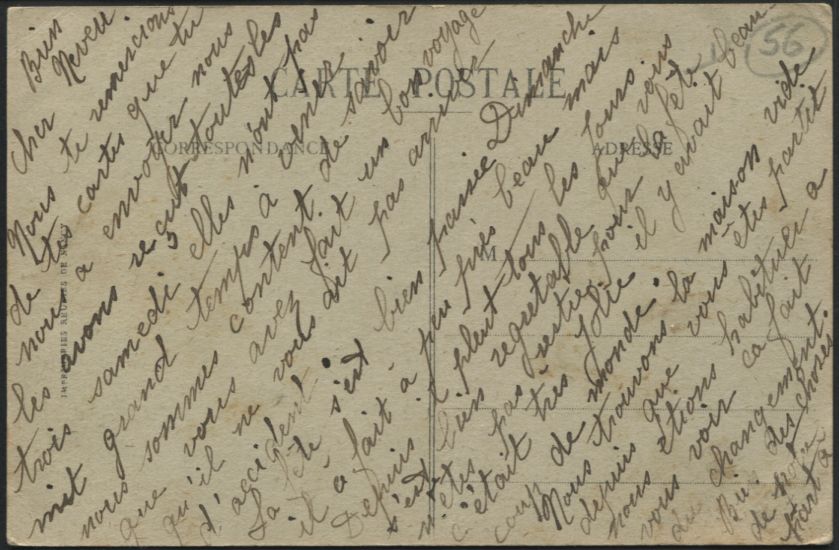 CARTE POSTALE
CORRESPONDANCE
ADRESSE
M
IMPRIMERIES REUNIES DE NANCY
56
Bien
Cher Neveu
Nous te remercions
de tes cartes que tu
nous a envoyer nous
les avons recut toutes les
trois samedi elles n'ont pas
mit grand temps à venir
nous sommes content de savoir
que vous avez fait un bon voyage
qu'il ne vous ait pas arriver
d'accident.
La fête s'est bien passée Dimanche
il a fait à peu près beau mais
Depuis il pleut tous les jours
s'est bien regretable que vous
n'êtes pas rester pour la fête
c'était très jolie il y avait beau-
coup de monde.
Nous trouvons la maison vide
depuis que vous êtes partit
nous étions habituer a
vous voir ca fait
du changement.
des choses
de
part à